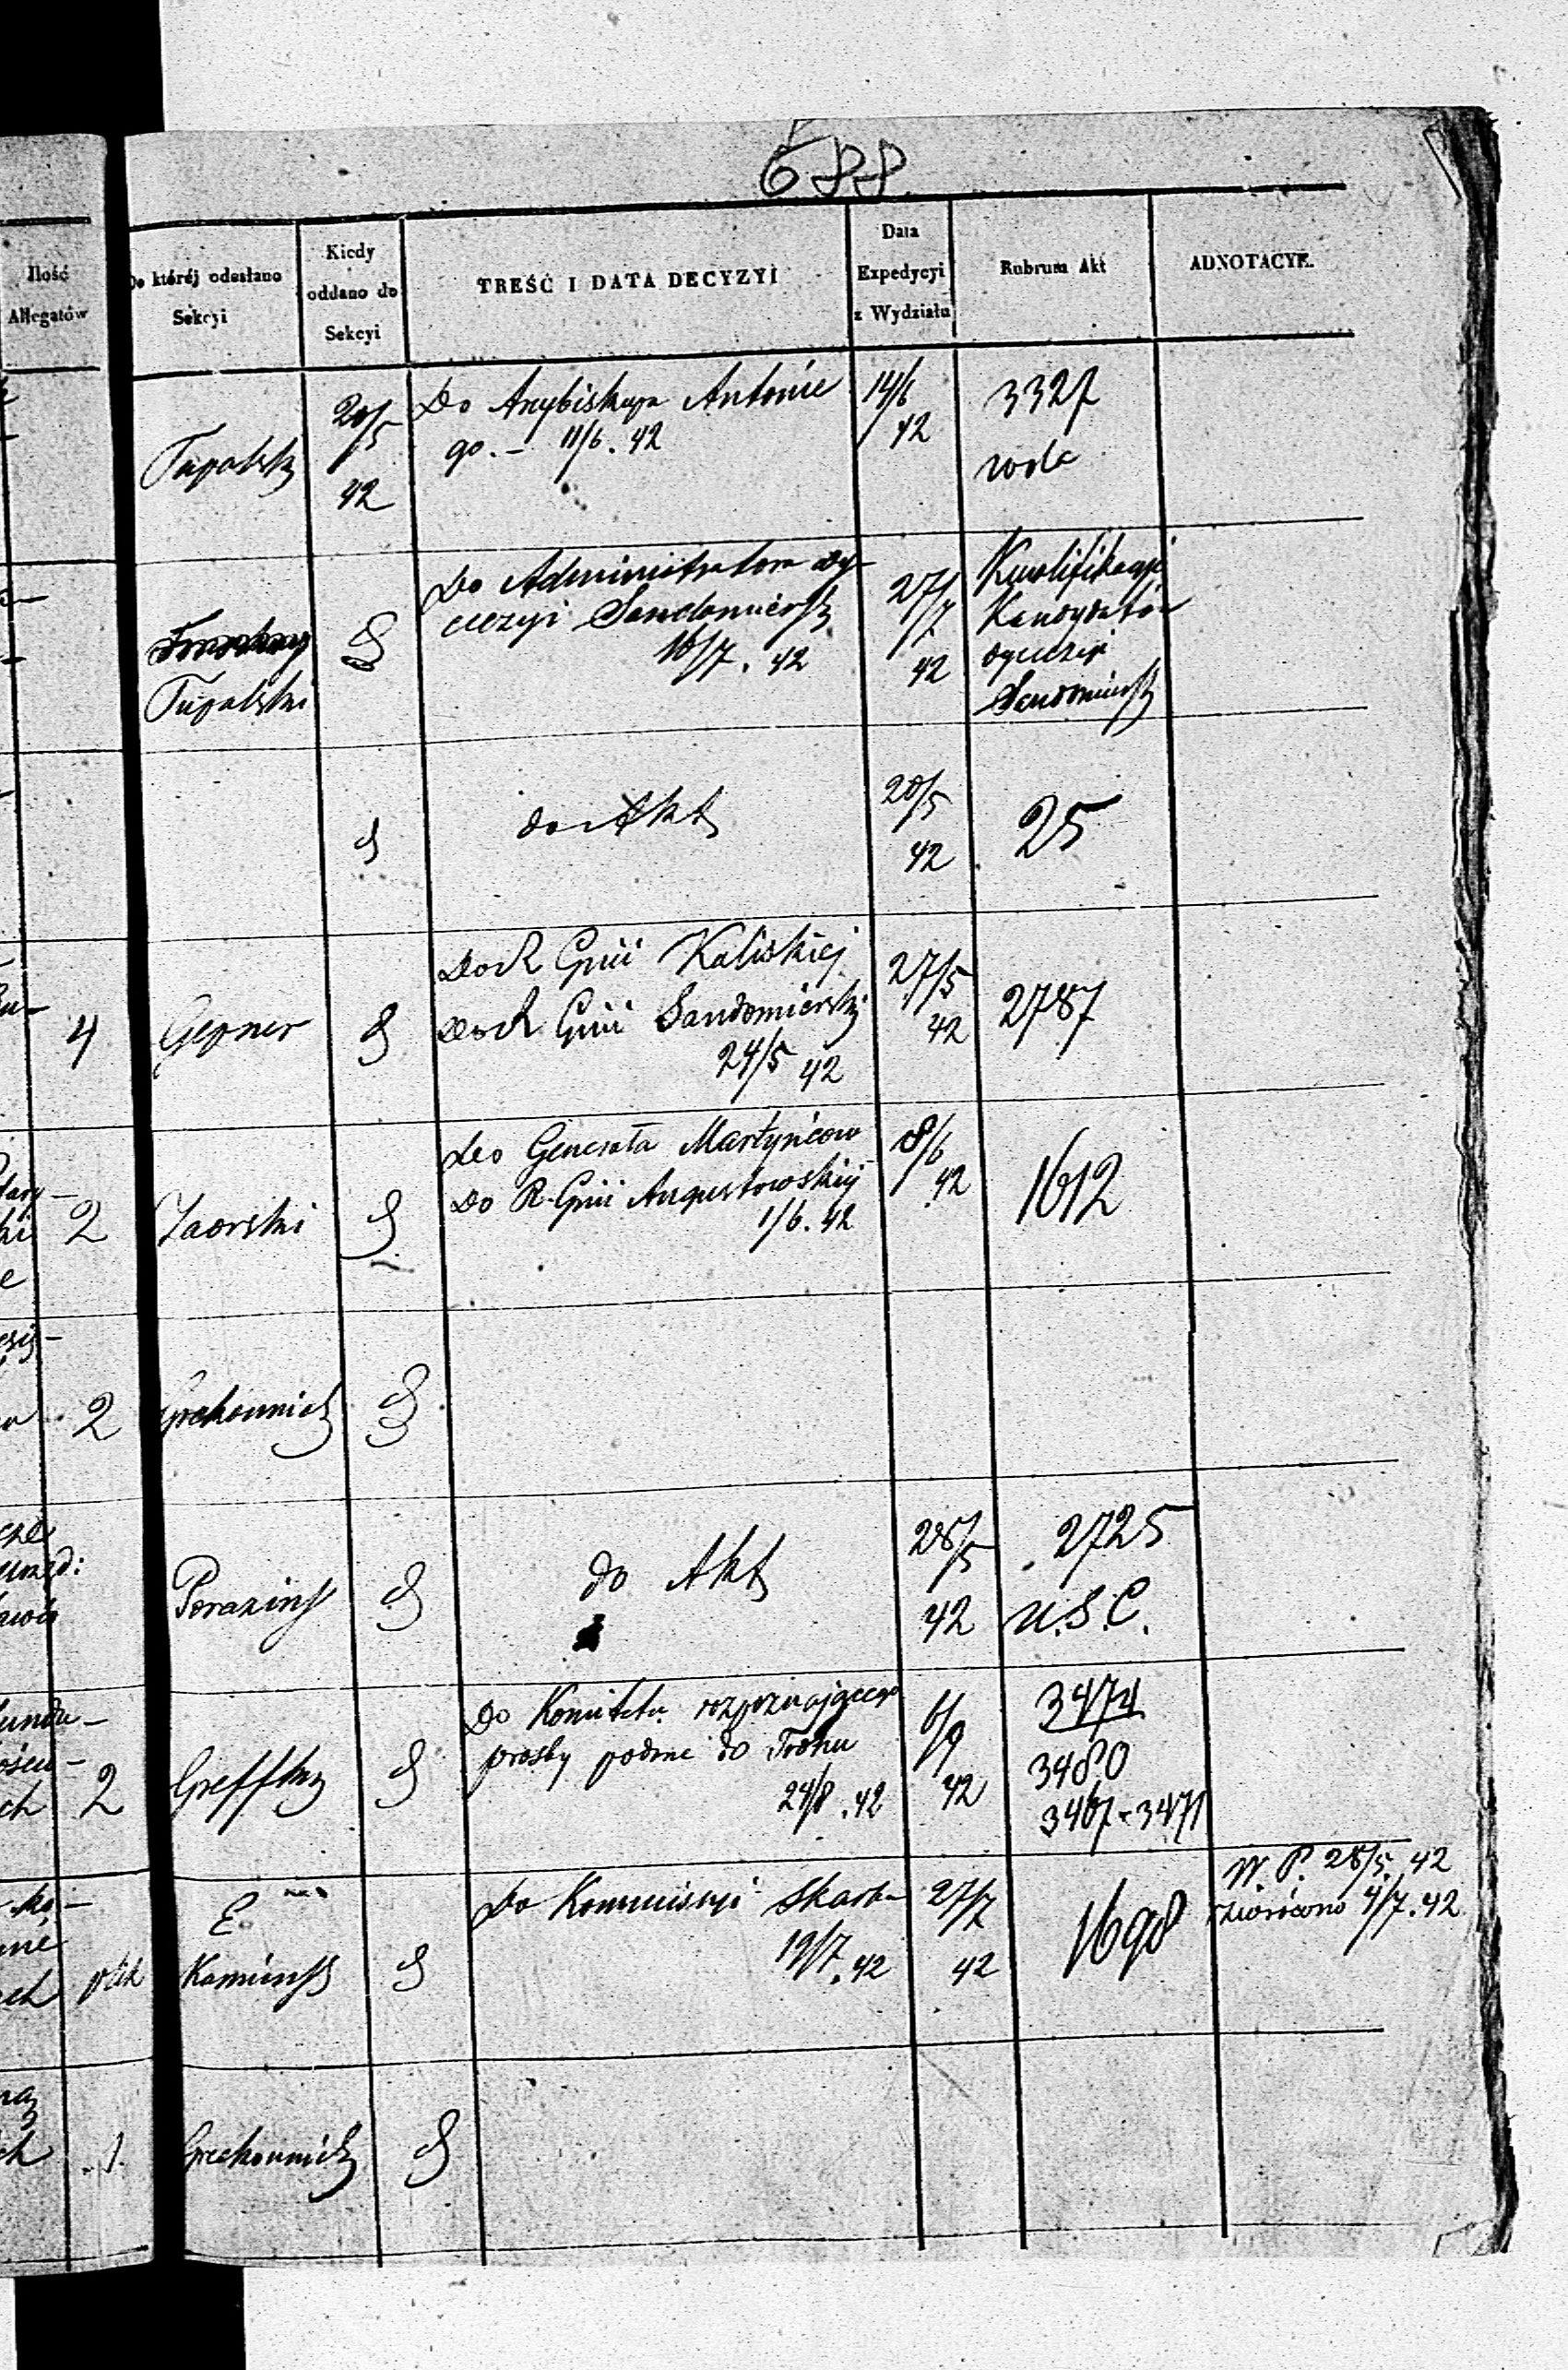 688
Ilość
Allegatów
Do któréj odesłano
Sekcyi
Kiedy
oddano do
Sekcyi
TREŚĆ I DATA DECYZYI
Data
Expedycyi
z Wydziału
Rubrum Akt
ADNOTACYE.
Tupalsk
20/5
42
Do Arcybiskupa Antonie
go. – 11/6. 42
14/6
42
3327
Tupalski
Do Administratora Dy-
ecezyi Sandomiersk
16/7. 42
27/7
42
Kwalifikacyi
Kandydatów
dyecezyi
Sandomiersk
do Akt
20/5
42
25
4
Gepner
Do R Gnii Kaliskiej
Do R Gnii Sandomierski
24/5 42
27/5
42
2787
2
Jaorski
Do Generała Martynéow
Do R. Gnii Augustowskiej
1/6. 42
8/6
42
1612
2
Grekounick
Porazińs
do Akt
28/5
42
2725
U.S.C.
2
Greffkz
Do Komitetu rozpoznającego
prośby podane do Tronu
24/8. 42
6/9
42
3474
3480
3467-3471
plik
E
Kamińsk
Do Kommissyi Skarbu
19/7. 42
27/7
42
1698
W. P. 28/5. 42
zwrócono 4/7. 42
1.
Grekounick